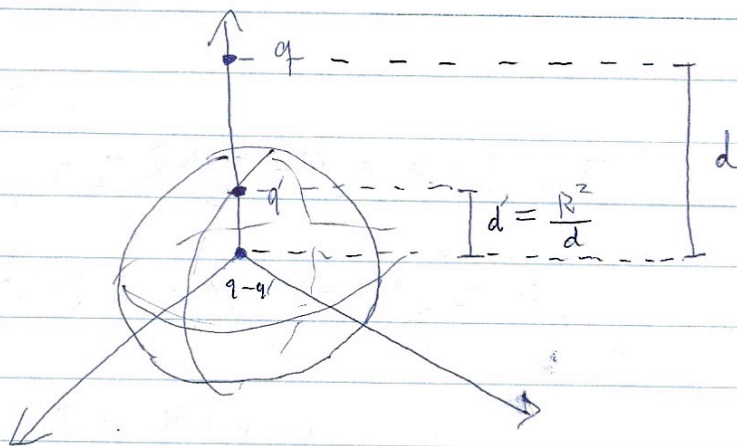 q
d
q'
d' = R²/d
q-q'